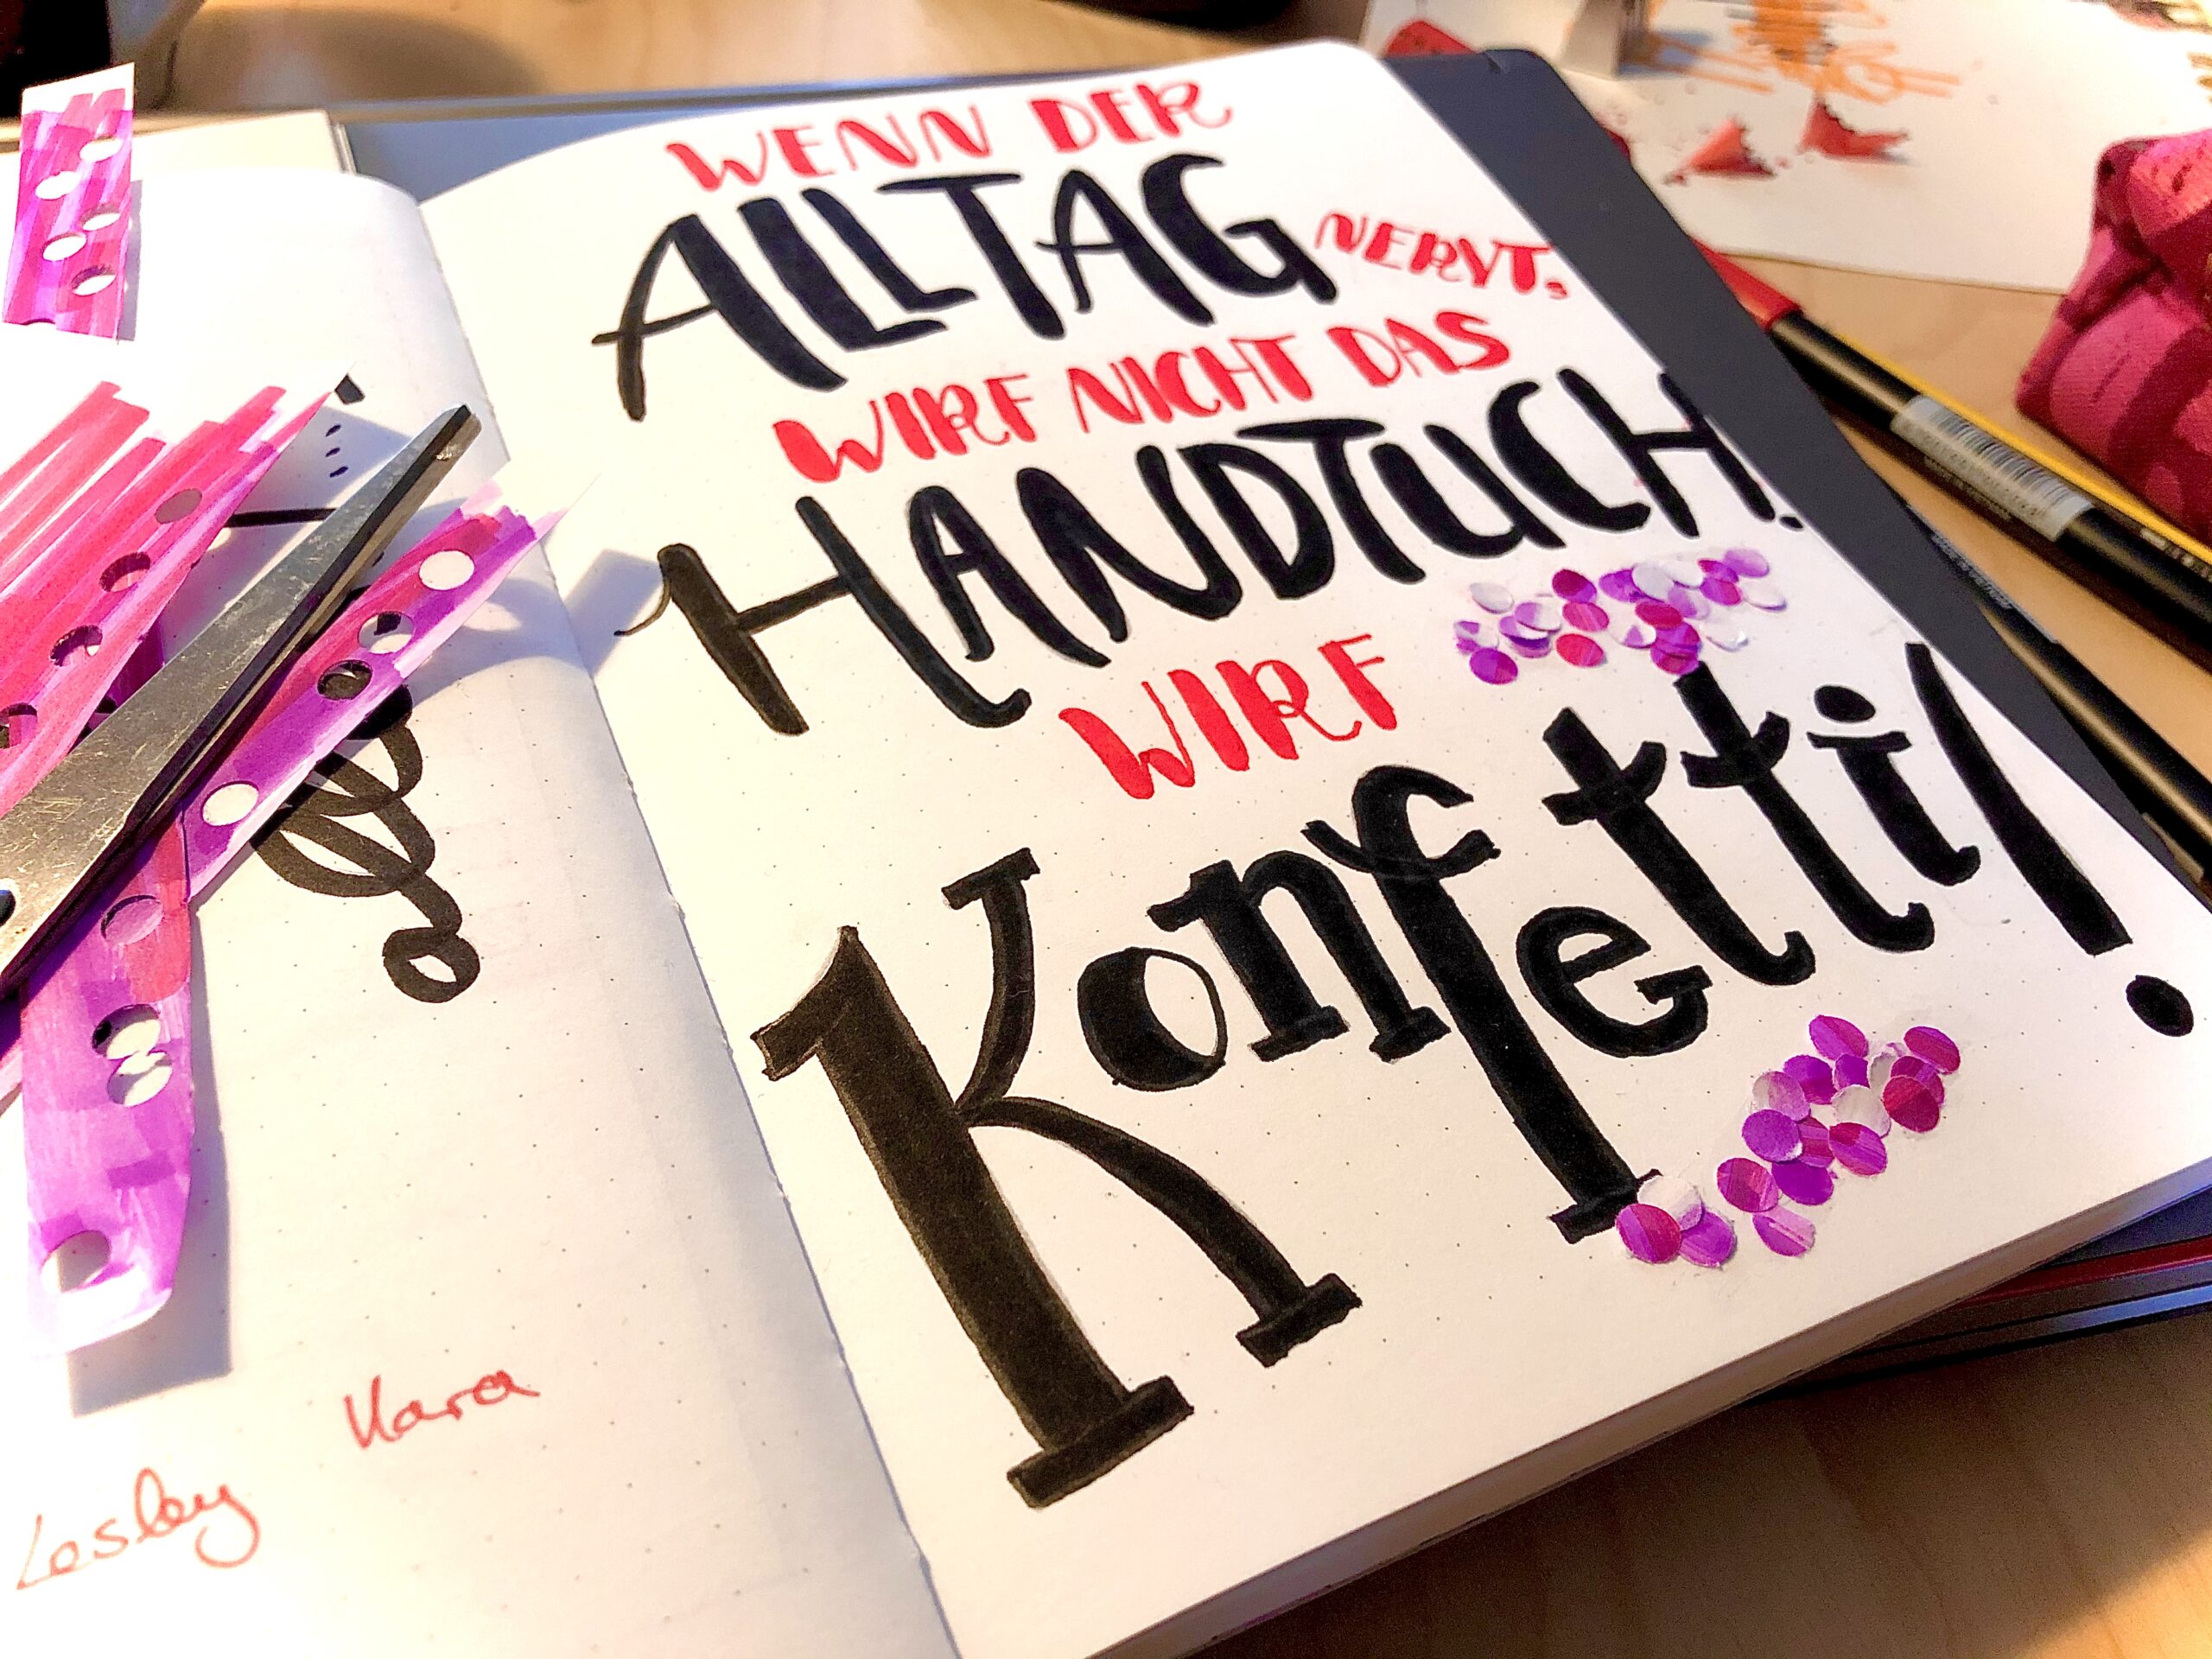 WENN DER
ALLTAG NERVT,
WIRF NICHT DAS
HANDTUCH!
WIRF
Konfetti!
Kara
Lesley